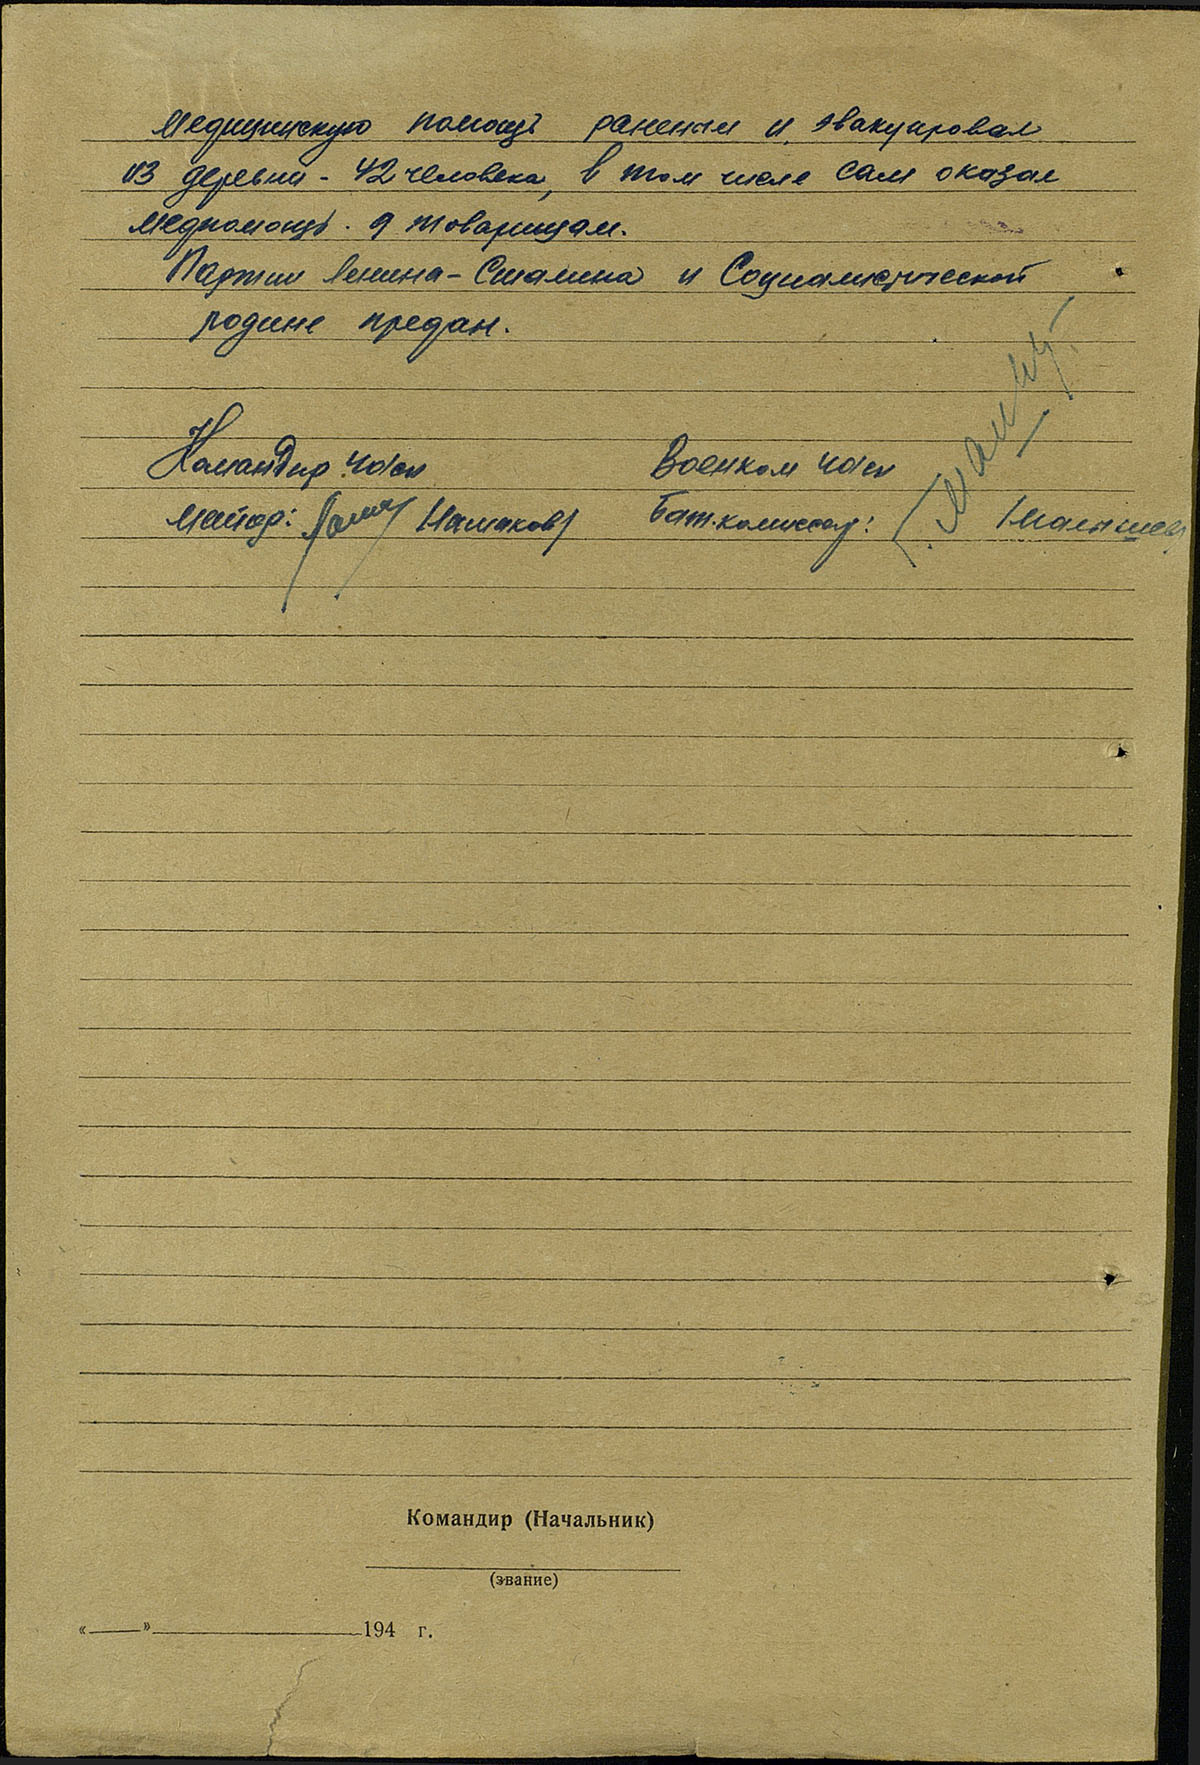 медицинскую помощь раненым и эвакуировал
из деревни - 42 человека, в том числе сам оказал
медпомощь. 9 товарищам.
Партии Ленина-Сталина и Социалистической
родине предан.
Командир части Военком части
Майор: Бат.комиссар: /Малышев/
Командир (Начальник)
(звание)
« » 194 г.